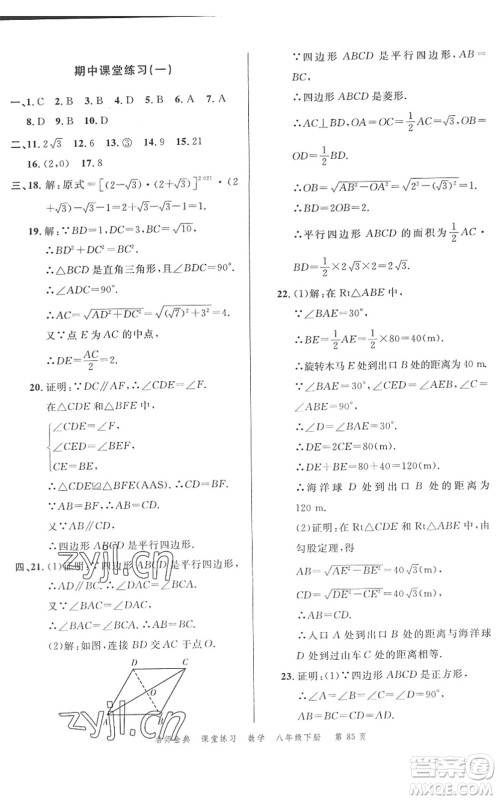 期中课堂练习(一)
一、1. C  2. B  3. B  4. C  5. B  6. A  7. A
8. D  9. B  10. D
二、11. 2√3  12. 6  13. ③  14. 9  15. 21
16. (2,0)  17. 8
三、18. 解：原式=[(2-√3)·(2+√3)]^2021·(2
-√3)-√3=1×(2-√3)-√3=2-2√3.
19. 解：∵BD=1，CD=3，BC=√10，
∴BD²+CD²=BC²，
∴△BCD是直角三角形，
∴AC=√(AD²+DC²)=√((√7)²+3²)=4.
又∵点 E 为 AC 的中点，
∴DE=AC/2=2.
20. 证明：∵DC∥AF，∴∠CDE=∠F，
在△CDE 和△BFE 中，
∠CDE=∠F，
∠CED=∠BEF，
CE=BE，
∴△CDE≌△BFE(AAS). ∴CD=BF.
又∵AC∥DF，
∴四边形 ACDF 是平行四边形.
四、21. (1)证明：∵四边形 ABCD 是平行四边形，
∴AD∥BC. ∴∠DAC=∠BCA.
又∵∠BAC=∠DAC，
∴∠BAC=∠BCA.
(2)解：如图，连接 BD 交 AC 于点 O.
A
D
O
B
C
∵四边形 ABCD 是平行四边形，AB=
BC，
∴四边形 ABCD 是菱形.
∴AC⊥BD，OA=OC=1/2AC=1，OB=
OD=1/2BD.
∴OB=√(AB²-OA²)=√(2²-1²)=√3.
∴BD=2OB=2√3.
∴平行四边形 ABCD 的面积为 1/2AC·
BD=1/2×2×2√3=2√3.
22. (1)解：在 Rt△ABE 中，
∵∠BAE=30°，
∴BE=1/2AE=1/2×80=40(m).
∴旋转木马 E 处到出口 B 处的距离为 40 m.
∵∠BAE=30°，∠CED=∠AEB，∠C=
∠ABE=90°，
∴∠D=∠BAE=30°.
∴DE=2CE=80(m).
∴BD=DE+BE=80+40=120(m).
∴海洋球 D 处到出口 B 处的距离为
120 m.
(2)证明：在 Rt△ABE 与 Rt△CDE 中，由
勾股定理，得
AB=√(AE²-BE²)=40√3(m)，
CD=√(DE²-CE²)=40√3(m).
∴AB=CD.
∴入口 A 处到出口 B 处的距离与海洋球
D 处到过山车 C 处的距离相等.
23. 证明：(1)∵四边形 ABCD 是正方形，
∴AB=DA，∠BAE=∠D=90°.
课堂练习  数学  八年级下册  第 85 页
zyjl.cn